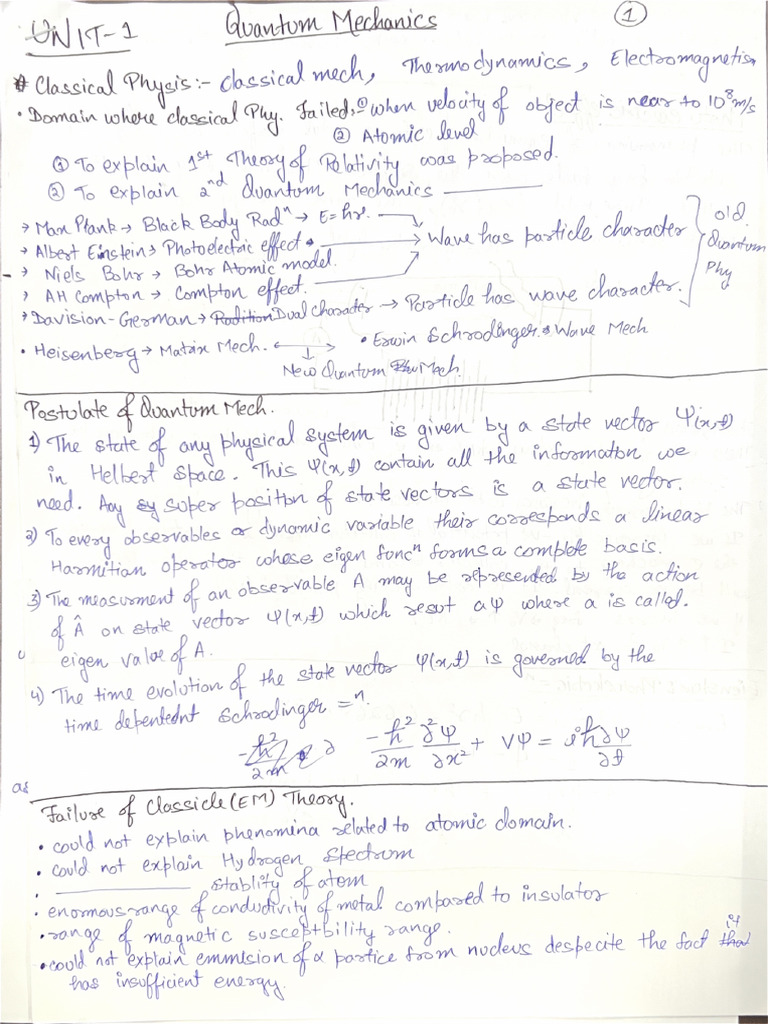 UNIT-1 Quantum Mechanics 1
# Classical Physis:- classical mech, Thermodynamics, Electromagnetism
• Domain where classical Phy. Failed:- ① when velocity of object is near to 10⁸ m/s
② Atomic level
① To explain 1st Theory of Relativity was proposed.
② To explain 2nd Quantum Mechanics ———
→ Max Plank → Black Body Radⁿ → E=hν.
→ Albert Einstein → Photoelectric effect
→ Niels Bohr → Bohr Atomic model.
→ AH Compton → Compton effect.
Wave has particle character
old Quantum Phy
→ Davision-German → Radition Dual Character → Particle has wave character.
• Heisenberg → Matrix Mech. ↔ • Erwin Schrodinger → Wave Mech
↓
New Quantum Phy Mech.
Postulate of Quantum Mech.
1) The state of any physical system is given by a state vector Ψ(x,t)
in Helbert Space. This Ψ(x,t) contain all the information we
need. Any sy super position of state vectors is a state vector.
2) To every observables or dynamic variable their corresponds a linear
Harmitian operator whose eigen funcⁿ forms a complete basis.
3) The measurment of an observable A may be represented by the action
of Â on state vector Ψ(x,t) which resut aΨ where a is called.
eigen value of A.
4) The time evolution of the state vector Ψ(x,t) is governed by the
time depentednt Schrodinger =ⁿ.
-ħ²/2m ∂ -ħ²/2m ∂²Ψ/∂x² + VΨ = iħ∂Ψ/∂t
as
Failure of Classicle (EM) Theory.
• could not explain phenomina related to atomic domain.
• could not explain Hydrogen spectrum
• ——— stablity of atom
• enormous range of conductivity of metal compared to insulator
• range of magnetic susceptbility range.
• could not explain emmision of α partice from nucleus despecite the fact that it
has insufficient energy.